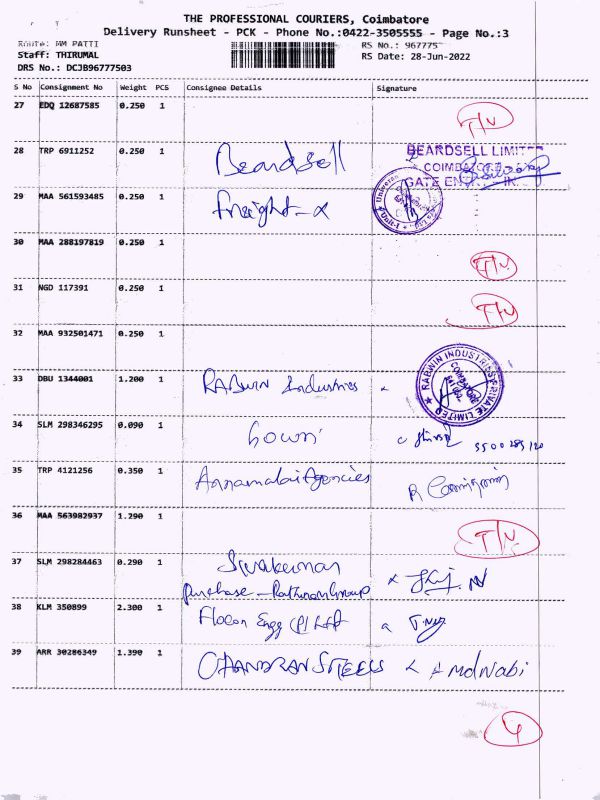 THE PROFESSIONAL COURIERS, Coimbatore
Delivery Runsheet - PCK - Phone No.:0422-3505555 - Page No.:3
Route: MM PATTI
RS No.: 967775
Staff: THIRUMAL
RS Date: 28-Jun-2022
DRS No.: DCJB96777503
S No Consignment No Weight PCS Consignee Details Signature
27 EDQ 12687585 0.250 1
T/V
28 TRP 6911252 0.250 1 Beardsell BEARDSELL LIMITED
COIMBATORE
GATE ENTRY IN
29 MAA 561593485 0.250 1 freight-x
30 MAA 288197819 0.250 1
T/V
31 NGD 117391 0.250 1
T/V
32 MAA 932501471 0.250 1
33 DBU 1344001 1.200 1 RABWIN Industries RABWIN INDUSTRIES PRIVATE LIMITED
COIMBATORE
34 SLM 298346295 0.090 1 Gowri
35 TRP 4121256 0.350 1 Annamalai Agencies
36 MAA 563982937 1.290 1
T/V
37 SLM 298284463 0.290 1 Sivakumar
purchase - Rathinam Group
38 KLM 350899 2.300 1 Flocon Engg (P) Ltd
39 ARR 30286349 1.390 1 CHANDRAN STEELS Md Nabi
4